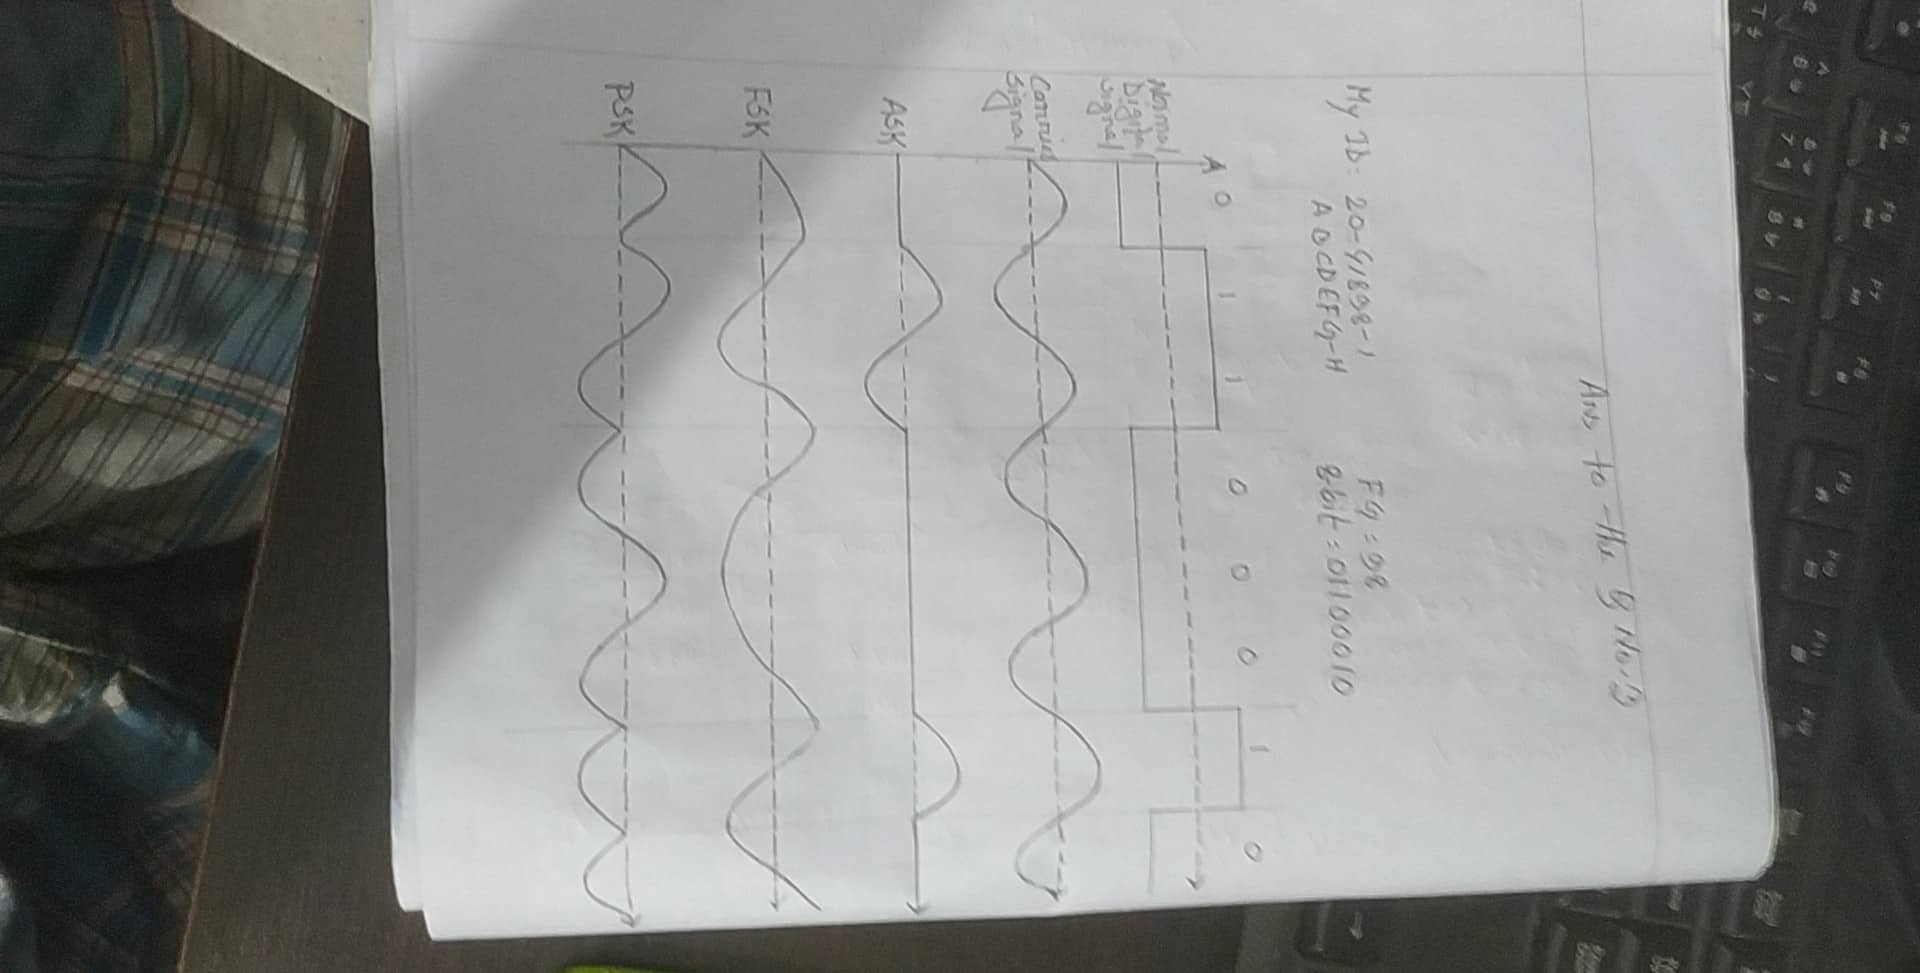 Ans to the Q No. 3
My ID: 20-41898-1
ABCDEFG-H
FG = 98
8 bit = 01100010
A 0 1 1 0 0 0 1 0
Normal
Digital
signal
Carrier
signal
ASK
FSK
PSK